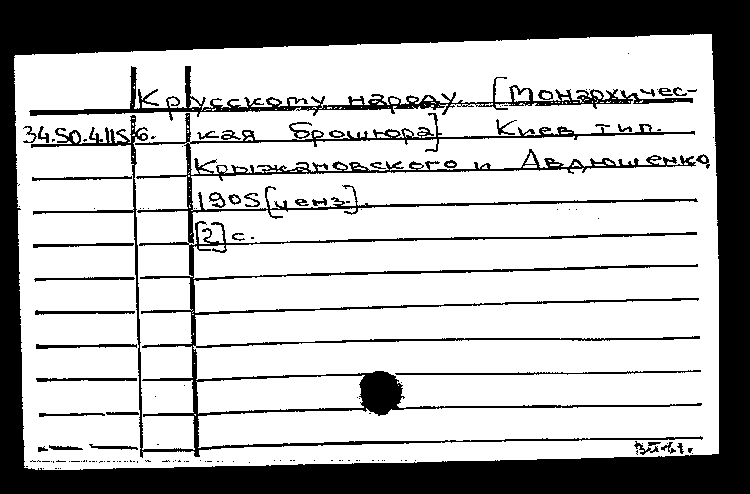 К русскому народу. [Монархичес-
34.50.4.115 6. кая брошюра]. Киев, тип.
Крыжановского и Авдюшенко,
1905 [ценз.].
[2] с.